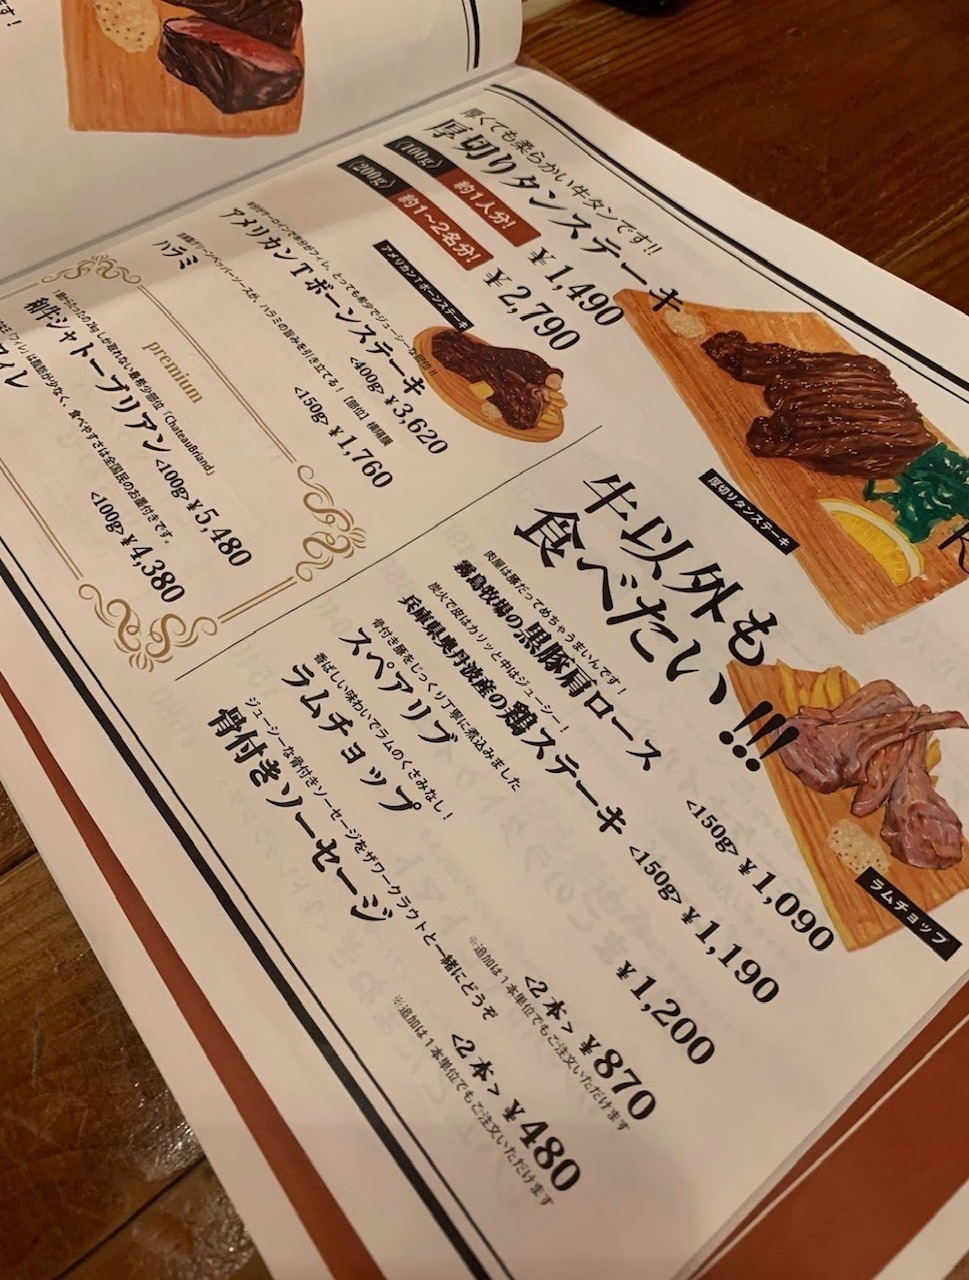 ます!
厚くても柔らかい牛タンです!!
厚切りタンステーキ
(100g) 約1人分! ¥1,490
(200g) 約1~2名分! ¥2,790
厚切りタンステーキ
アメリカンTボーンステーキ
アメリカンTボーンステーキ <400g> ¥3,620
ハラミの旨みを引き立てる! 【部位】横隔膜
ハラミ <150g> ¥1,760
premium
しか取れない 部位「ChateauBriand」
和牛シャトーブリアン <100g> ¥5,480
は脂肪が少なく、食べやすさは全国民のお墨付きです。
フィレ <100g> ¥4,380
牛以外も
食べたい!!!
肉屋は豚だってめちゃうまいんです!
霧島牧場の黒豚肩ロース <150g> ¥1,090
炭火で皮はカリッと中はジューシー!
兵庫県奥丹波産の鶏ステーキ <150g> ¥1,190
骨付き豚をじっくり丁寧に煮込みました
スペアリブ ¥1,200
香ばしい味わいでラムのくさみなし!
ラムチョップ <2本> ¥870
※追加は1本単位でもご注文いただけます
ジューシーな骨付きソーセージをザワークラウトと一緒にどうぞ
骨付きソーセージ <2本> ¥480
※追加は1本単位でもご注文いただけます
ラムチョップ